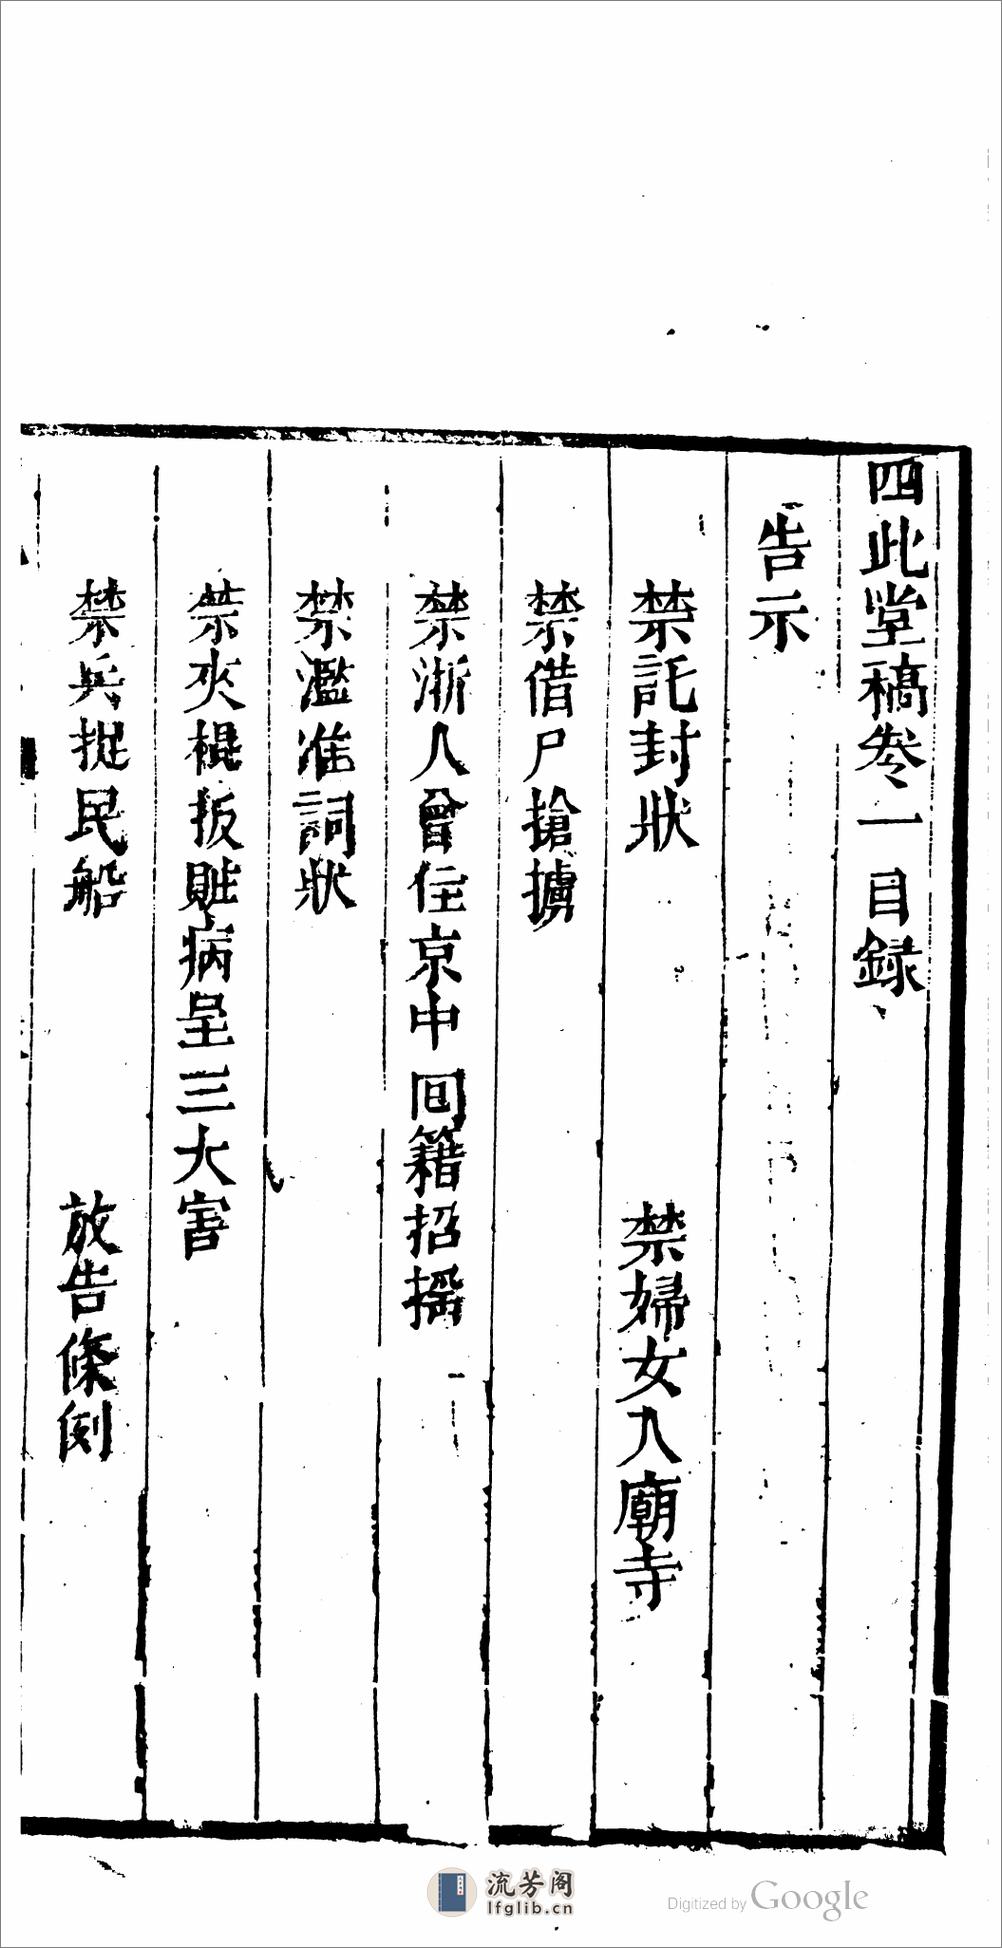 四此堂稿卷一目録
告示
禁託封狀 禁婦女入廟寺
禁借尸搶擄
禁浙人曾住京中回籍招摇
禁濫准詞狀
禁夾棍扳賍病呈三大害
禁兵捉民船 放告條例
流芳阁
lfglib.cn
Digitized by Google